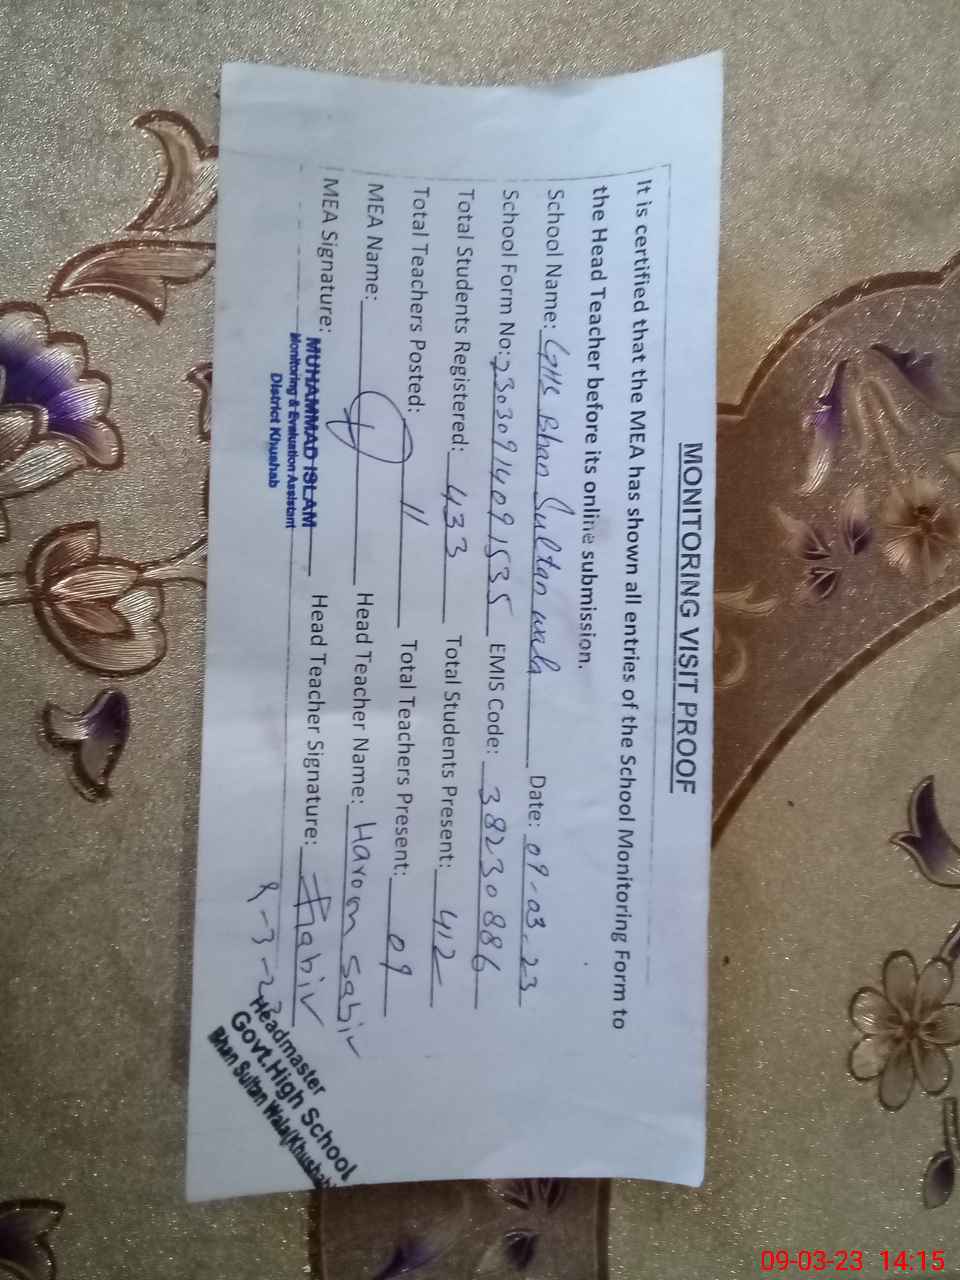 MONITORING VISIT PROOF
It is certified that the MEA has shown all entries of the School Monitoring Form to
the Head Teacher before its online submission.
School Name: GHS Bhan Sultan wala Date: 09-03.23
School Form No: 23030914091535 EMIS Code: 38230886
Total Students Registered: 433 Total Students Present: 412
Total Teachers Posted: 11 Total Teachers Present: 09
MEA Name: Head Teacher Name: Haroon Sabir
MEA Signature: MUHAMMAD ISLAM Head Teacher Signature: Sabir
Monitoring & Evaluation Assistant
District Khushab
9-3-23
Headmaster
Govt.High School
Bhan Sultan Wala(Khushab)
09-03-23 14:15